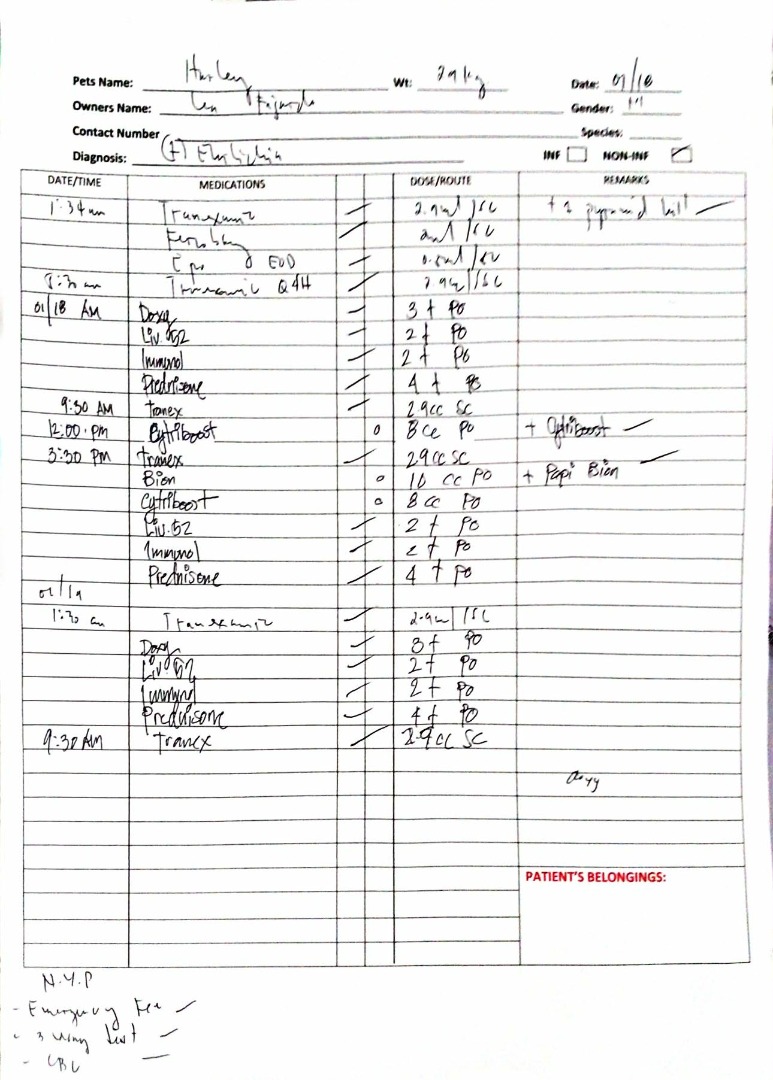 Pets Name: Harley Wt: 29 kg Date: 01/18
Owners Name: Len Fajardo Gender: M
Contact Number Species:
Diagnosis: (+) Ehrlichia INF NON-INF
DATE/TIME MEDICATIONS DOSE/ROUTE REMARKS
1:34 am Tranexamic 2.9ml /SC
2ml /SC
EOD
Tranexamic Q4H 2.9ml /SC
01/18 AM Doxy 3 t PO
Liv.52 2 t PO
Immunol 2 t PO
Prednisone 4 t PO
9:30 AM Tranex 2.9cc SC
12:00 PM Cytriboost 8 cc PO + Cytriboost
3:30 PM Tranex 2.9cc SC
Bion 10 cc PO + Papi Bion
Cytriboost 8 cc PO
Liv.52 2 t PO
Immunol 2 t PO
Prednisone 4 t PO
1:30 am Tranexamic 2.9ml /SC
Doxy 3 t PO
Liv.52 2 t PO
Immunol 2 t PO
Prednisone 4 t PO
9:30 AM Tranex 2.9 cc SC
PATIENT'S BELONGINGS:
N.Y.P
- Emergency Fee
- 3 way test
- CBC